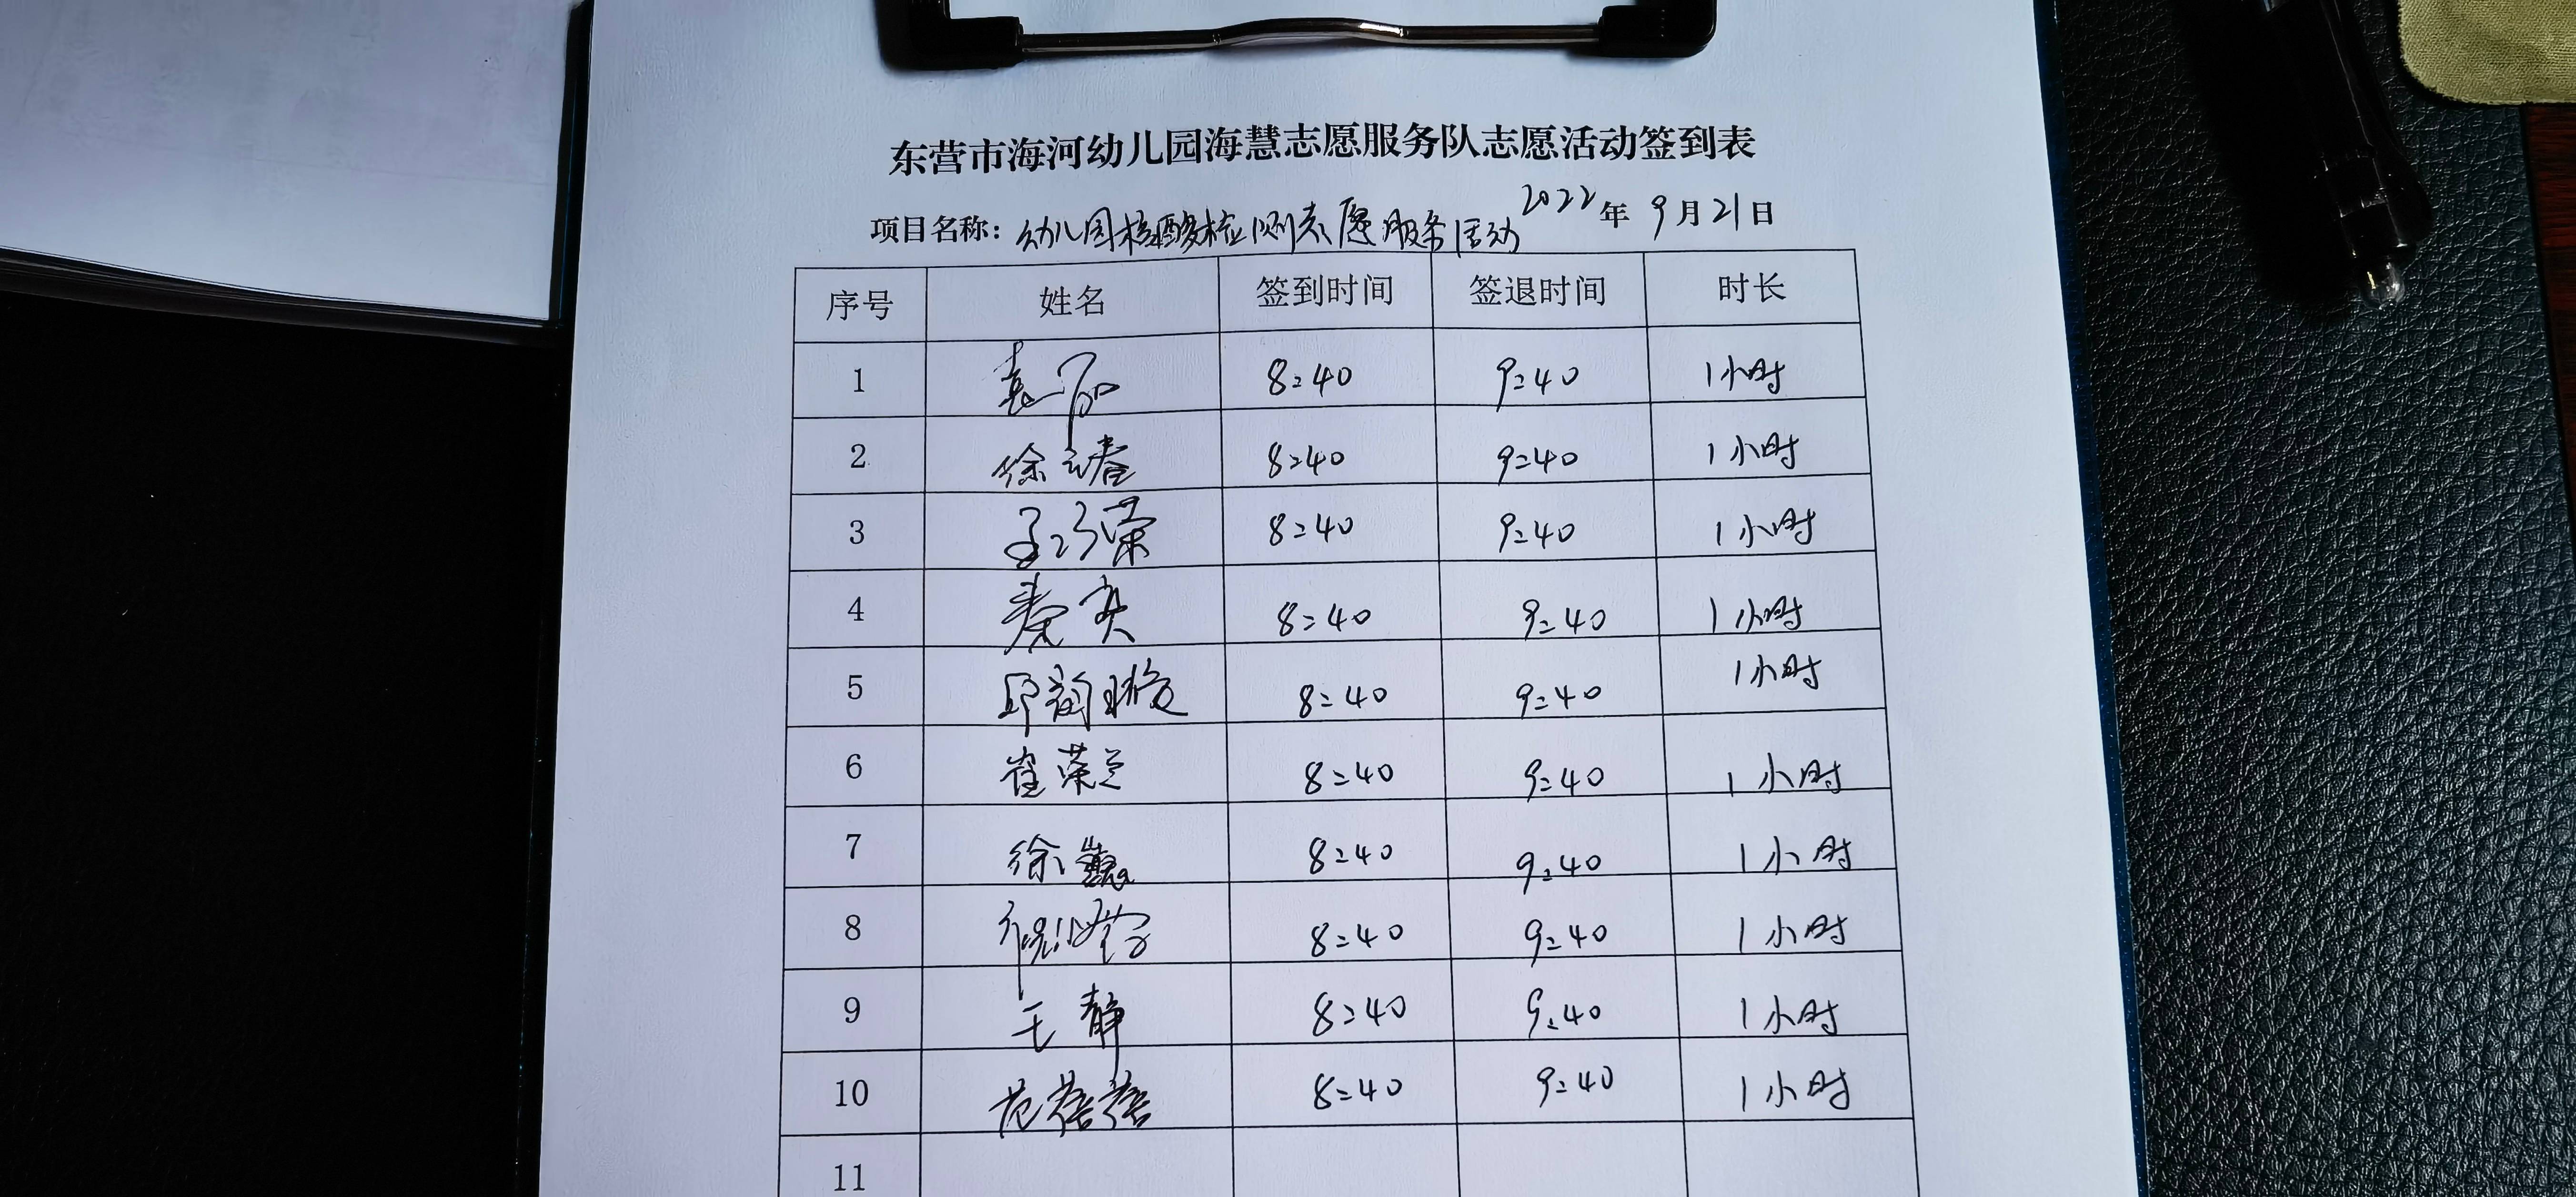 东营市海河幼儿园海慧志愿服务队志愿活动签到表
项目名称：幼儿园核酸检测志愿服务活动 2022年9月21日
序号 姓名 签到时间 签退时间 时长
1 袁丽 8:40 9:40 1小时
2 徐春 8:40 9:40 1小时
3 孟巧荣 8:40 9:40 1小时
4 秦爽 8:40 9:40 1小时
5 邱韵璇 8:40 9:40 1小时
6 崔荣兰 8:40 9:40 1小时
7 徐巍 8:40 9:40 1小时
8 8:40 9:40 1小时
9 王静 8:40 9:40 1小时
10 范蓓蓓 8:40 9:40 1小时
11